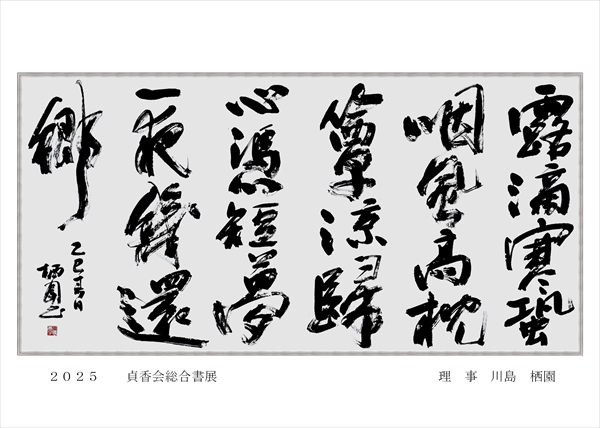 露滴寒蛩
咽風高枕
簟涼歸
心憑短夢
一夜幾還
鄉
乙巳春日
栖園書
２０２５　貞香会総合書展
理　事　川島　栖園